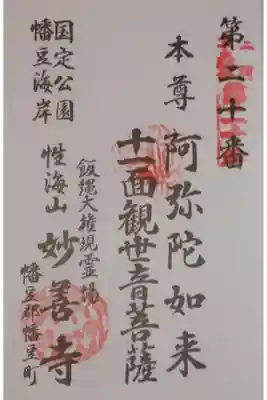 第二十番
本尊 阿弥陀如来
十一面観世音菩薩
飯縄大権現霊場
性海山 妙善寺
幡豆郡幡豆町
国定公園
幡豆海岸